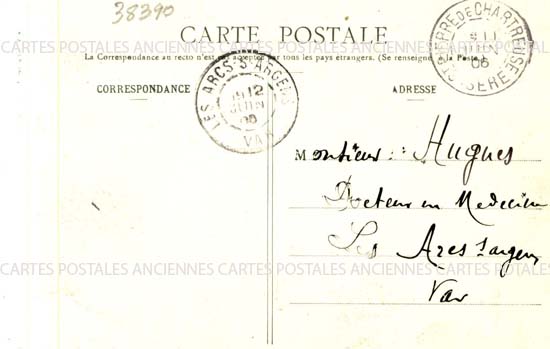 38390
CARTE POSTALE
La Correspondance au recto n'est pas acceptée par tous les pays étrangers. (Se renseigner à la Poste.)
CORRESPONDANCE
ADRESSE
LES ARCS-S-ARGENS
12
JUIN
06
VAR
ST PIERRE DE CHARTREUSE
06
ISÈRE
Monsieur Hugues
Docteur en Medecine
Les Arcs s argens
Var
CARTES POSTALES ANCIENNES CARTES POSTALES ANCIENNES CARTES POSTALES ANCIENNES
CARTES POSTALES ANCIENNES CARTES POSTALES ANCIENNES CARTES POSTALES ANCIENNES